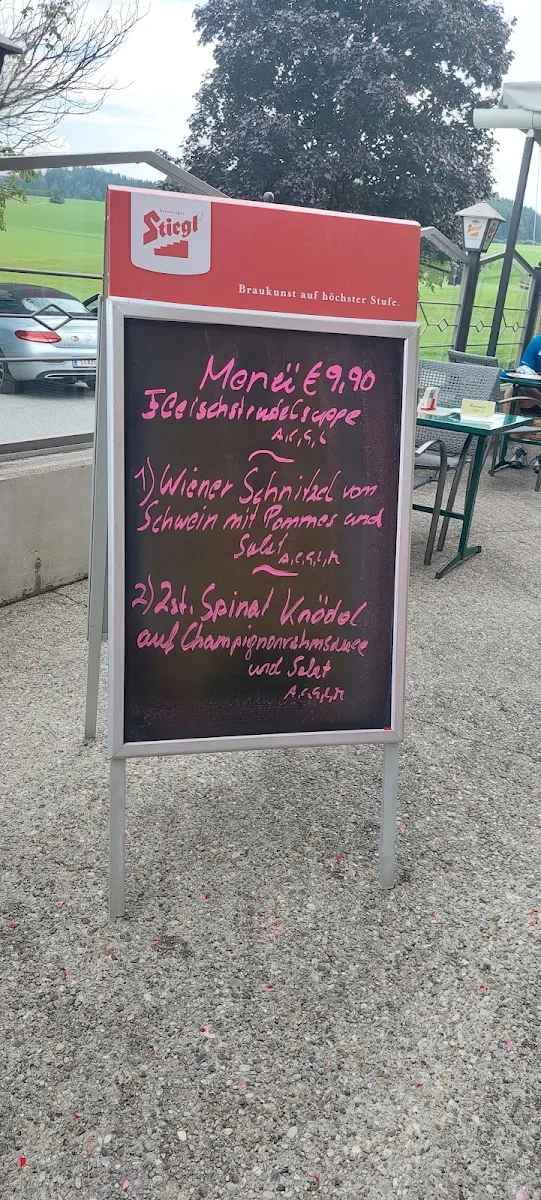 Salzburger
Stiegl
Braukunst auf höchster Stufe.
Menü € 9,90
Fleischstrudelsuppe
A,C,G,L
~
1) Wiener Schnitzel vom
Schwein mit Pommes und
Salat
A,C,G,L,M
~
2) 2 st. Spinat Knödel
auf Champignonrahmsauce
und Salat
A,C,G,L,M
Stiegl